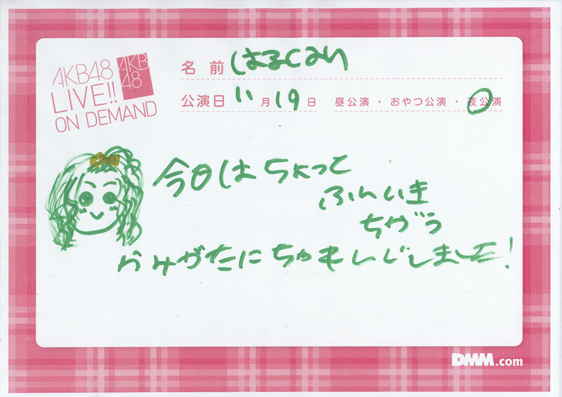 AKB48
LIVE!!
ON DEMAND
AKB
48
名 前 はるcみり
公演日 11 月 19 日 昼公演・おやつ公演・夜公演
今日はちょっと
ふんいき
ちがう
かみがたにちゃれんじしました!
DMM.com